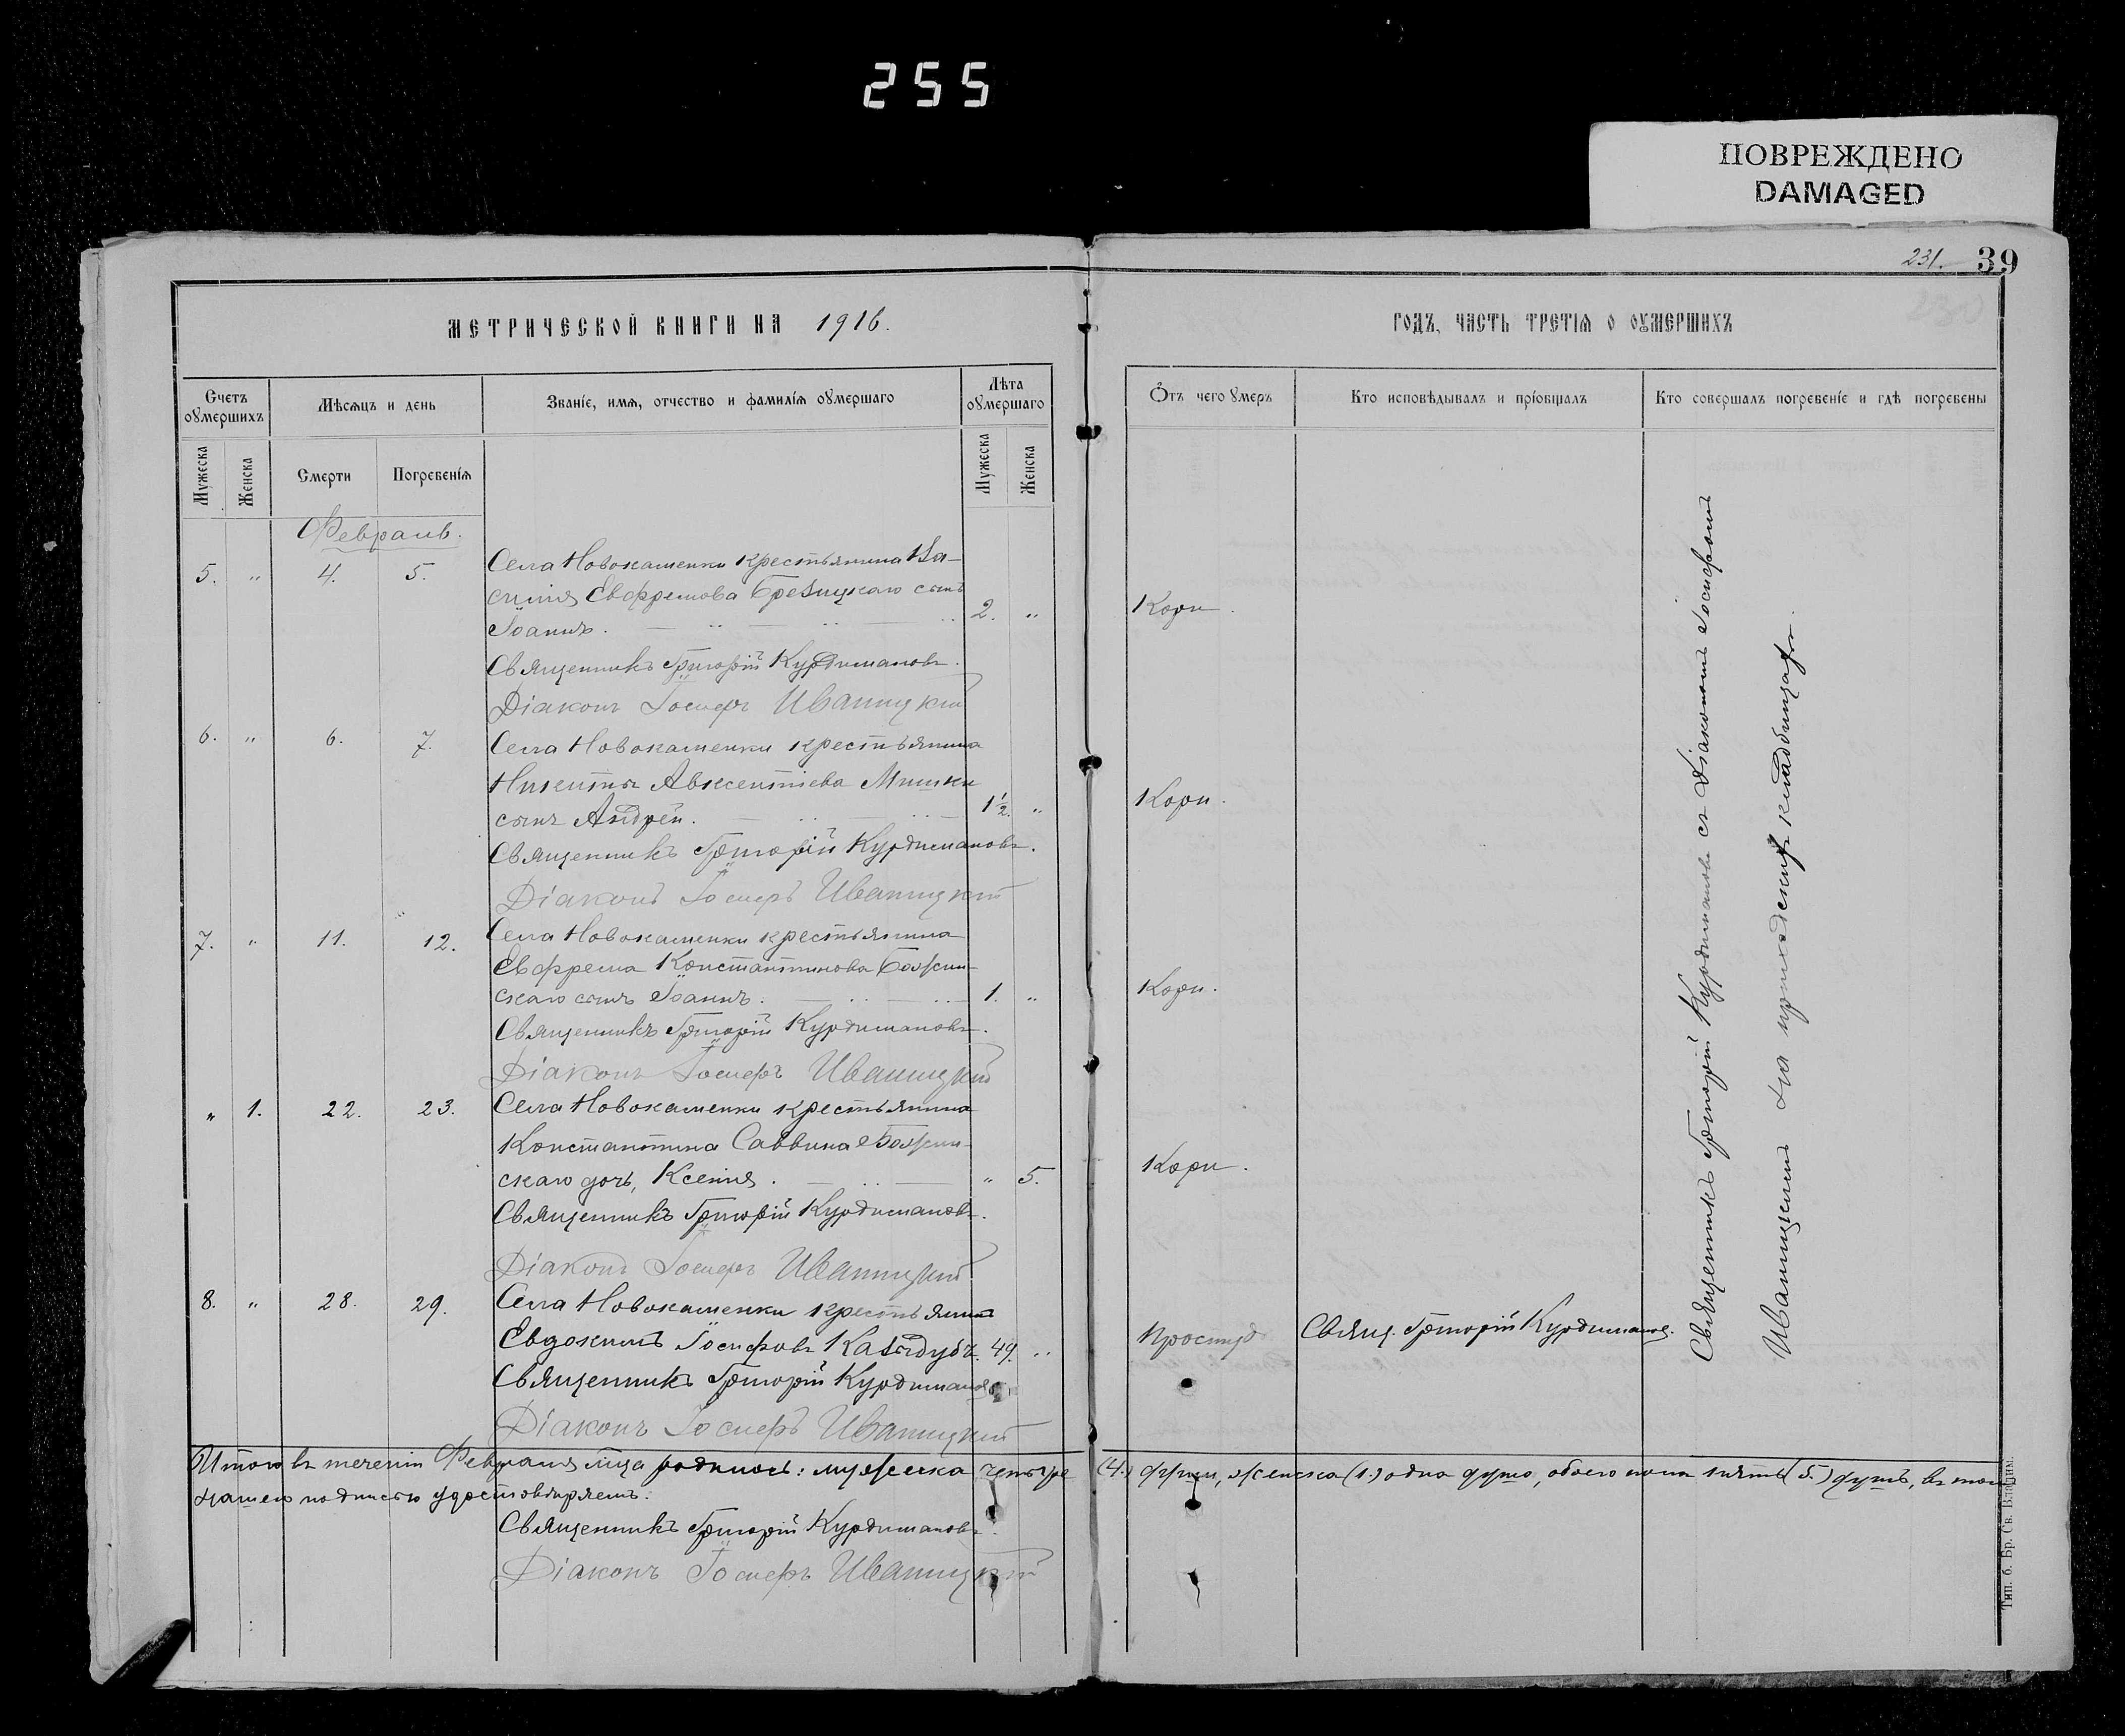 255
ПОВРЕЖДЕНО
DAMAGED
231.
39
МЕТРИЧЕСКОЙ КНИГИ НА 1916.
ГОДЪ, ЧАСТЬ ТРЕТІЯ О ОУМЕРШИХЪ
Счетъ оумершихъ
Мѣсяцъ и день
Званіе, имя, отчество и фамилія оумершаго
Лѣта оумершаго
Отъ чего умеръ
Кто исповѣдывалъ и пріобщалъ
Кто совершалъ погребеніе и гдѣ погребены
Мужеска
Женска
Смерти
Погребенія
Мужеска
Женска
Февраль.
5. " 4. 5.
Села Новокаменки крестьянина Ва-
силія Евфремова сынъ
Іоаннъ. 2. "
Кори.
Священникъ Григорій Курдимановъ.
Діаконъ Іосифъ Иваницкій
6. " 6. 7.
Села Новокаменки крестьянина
Авксентіева Мишки
сынъ Андрей. 1½. "
Кори.
Священникъ Григорій Курдимановъ.
Діаконъ Іосифъ Иваницкій
7. " 11. 12.
Села Новокаменки крестьянина
Евфрема Константинова Божин-
скаго сынъ Іоаннъ. 1. "
Кори.
Священникъ Григорій Курдимановъ.
Діаконъ Іосифъ Иваницкій
" 1. 22. 23.
Села Новокаменки крестьянина
Константина Саввина Божин-
скаго дочь, Ксенія. " 5.
Кори.
Священникъ Григорій Курдимановъ.
Діаконъ Іосифъ Иваницкій
8. " 28. 29.
Села Новокаменки крестьянинъ
Евдокимъ Іосифовъ 49. "
Простуд
Свящ. Григорій Курдимановъ.
Священникъ Григорій Курдимановъ
Діаконъ Іосифъ Иваницкій
Священникъ Григорій Курдимановъ съ Діакономъ Іосифомъ
Иваницкимъ на приходскомъ кладбищѣ.
Итого въ теченіи Февраля м-ца родилось: мужеска четыре (4.) души, женска (1.) одна душа, обоего пола пять (5.) душъ, въ томъ
нашею подписью удостовѣряемъ:
Священникъ Григорій Курдимановъ.
Діаконъ Іосифъ Иваницкій
Тип. б. Бр. Св. Владим.